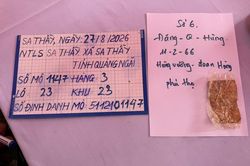 SA THẦY, NGÀY: 27/8/2026
NTLS SA THẦY XÃ SA THẦY
TỈNH QUẢNG NGÃI
SỐ MỘ 1147 HÀNG 3
LÔ 23 KHU 23
SỐ ĐỊNH DANH MỘ 5112101147
Số 6.
Đặng - Q - Hùng
11-2-66
Hùng vương - Đoan Hùng
phú thọ